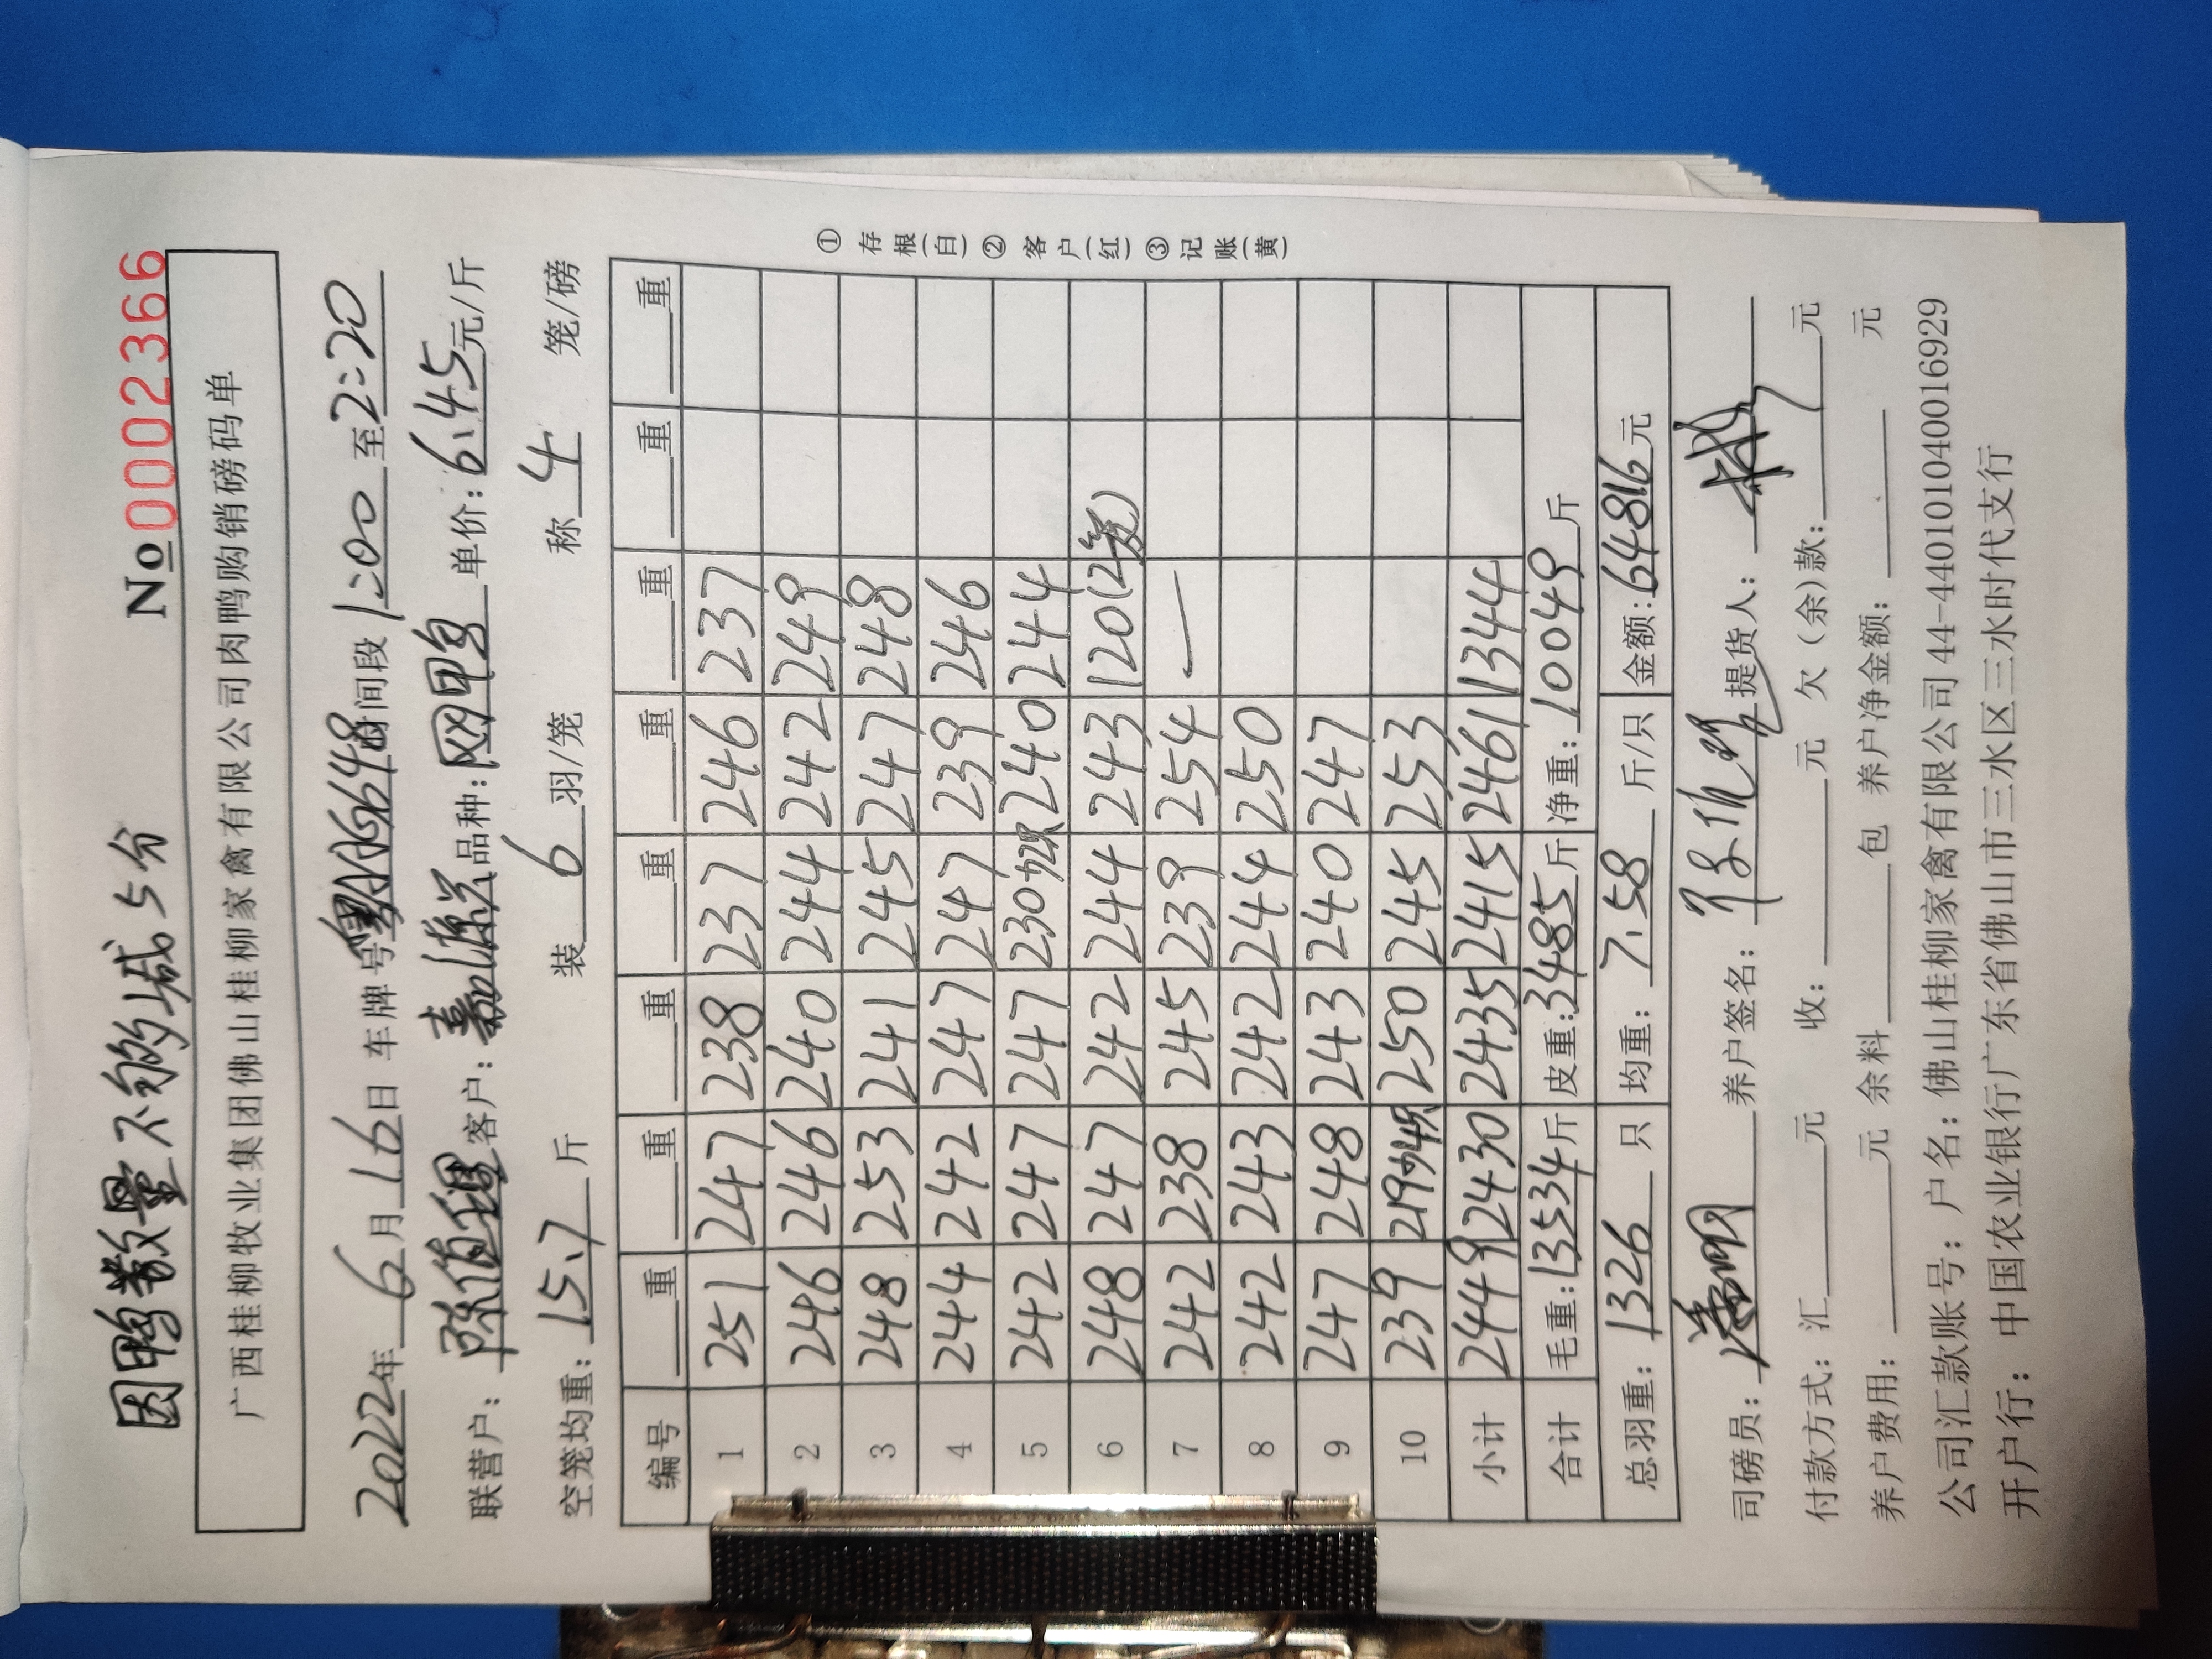 因鸭数量不够减5分
No 0002366
广西桂柳牧业集团佛山桂柳家禽有限公司肉鸭购销磅码单
2022年 6月 16日 车牌号 时间段 1:00 至 2:20
联营户: 客户: 品种: 单价: 6.45元/斤
空笼均重: 15.7 斤 装 6 羽/笼 称 4 笼/磅
编号 重 重 重 重 重 重 重 重
1 251 247 238 237 246 237
2 246 246 240 244 242 249
3 248 253 241 245 247 248
4 244 242 247 247 239 246
5 242 247 247 230加2只 240 244
6 248 247 242 244 243 120(2笼)
7 242 238 245 239 254 —
8 242 243 242 244 250
9 247 248 243 240 247
10 239 219加4只 250 245 253
小计 2449 2430 2435 2415 2461 1344
合计 毛重:13534斤 皮重:3485斤 净重:10049斤
总羽重: 1326 只 均重: 7.58 斤/只 金额:64816元
①存根(白)②客户(红)③记账(黄)
司磅员: 养户签名: 提货人:
付款方式: 汇 元 收: 元 欠(余)款: 元
养户费用: 元 余料 包 养户净金额: 元
公司汇款账号: 户名: 佛山桂柳家禽有限公司 44-440101040016929
开户行: 中国农业银行广东省佛山市三水区三水时代支行